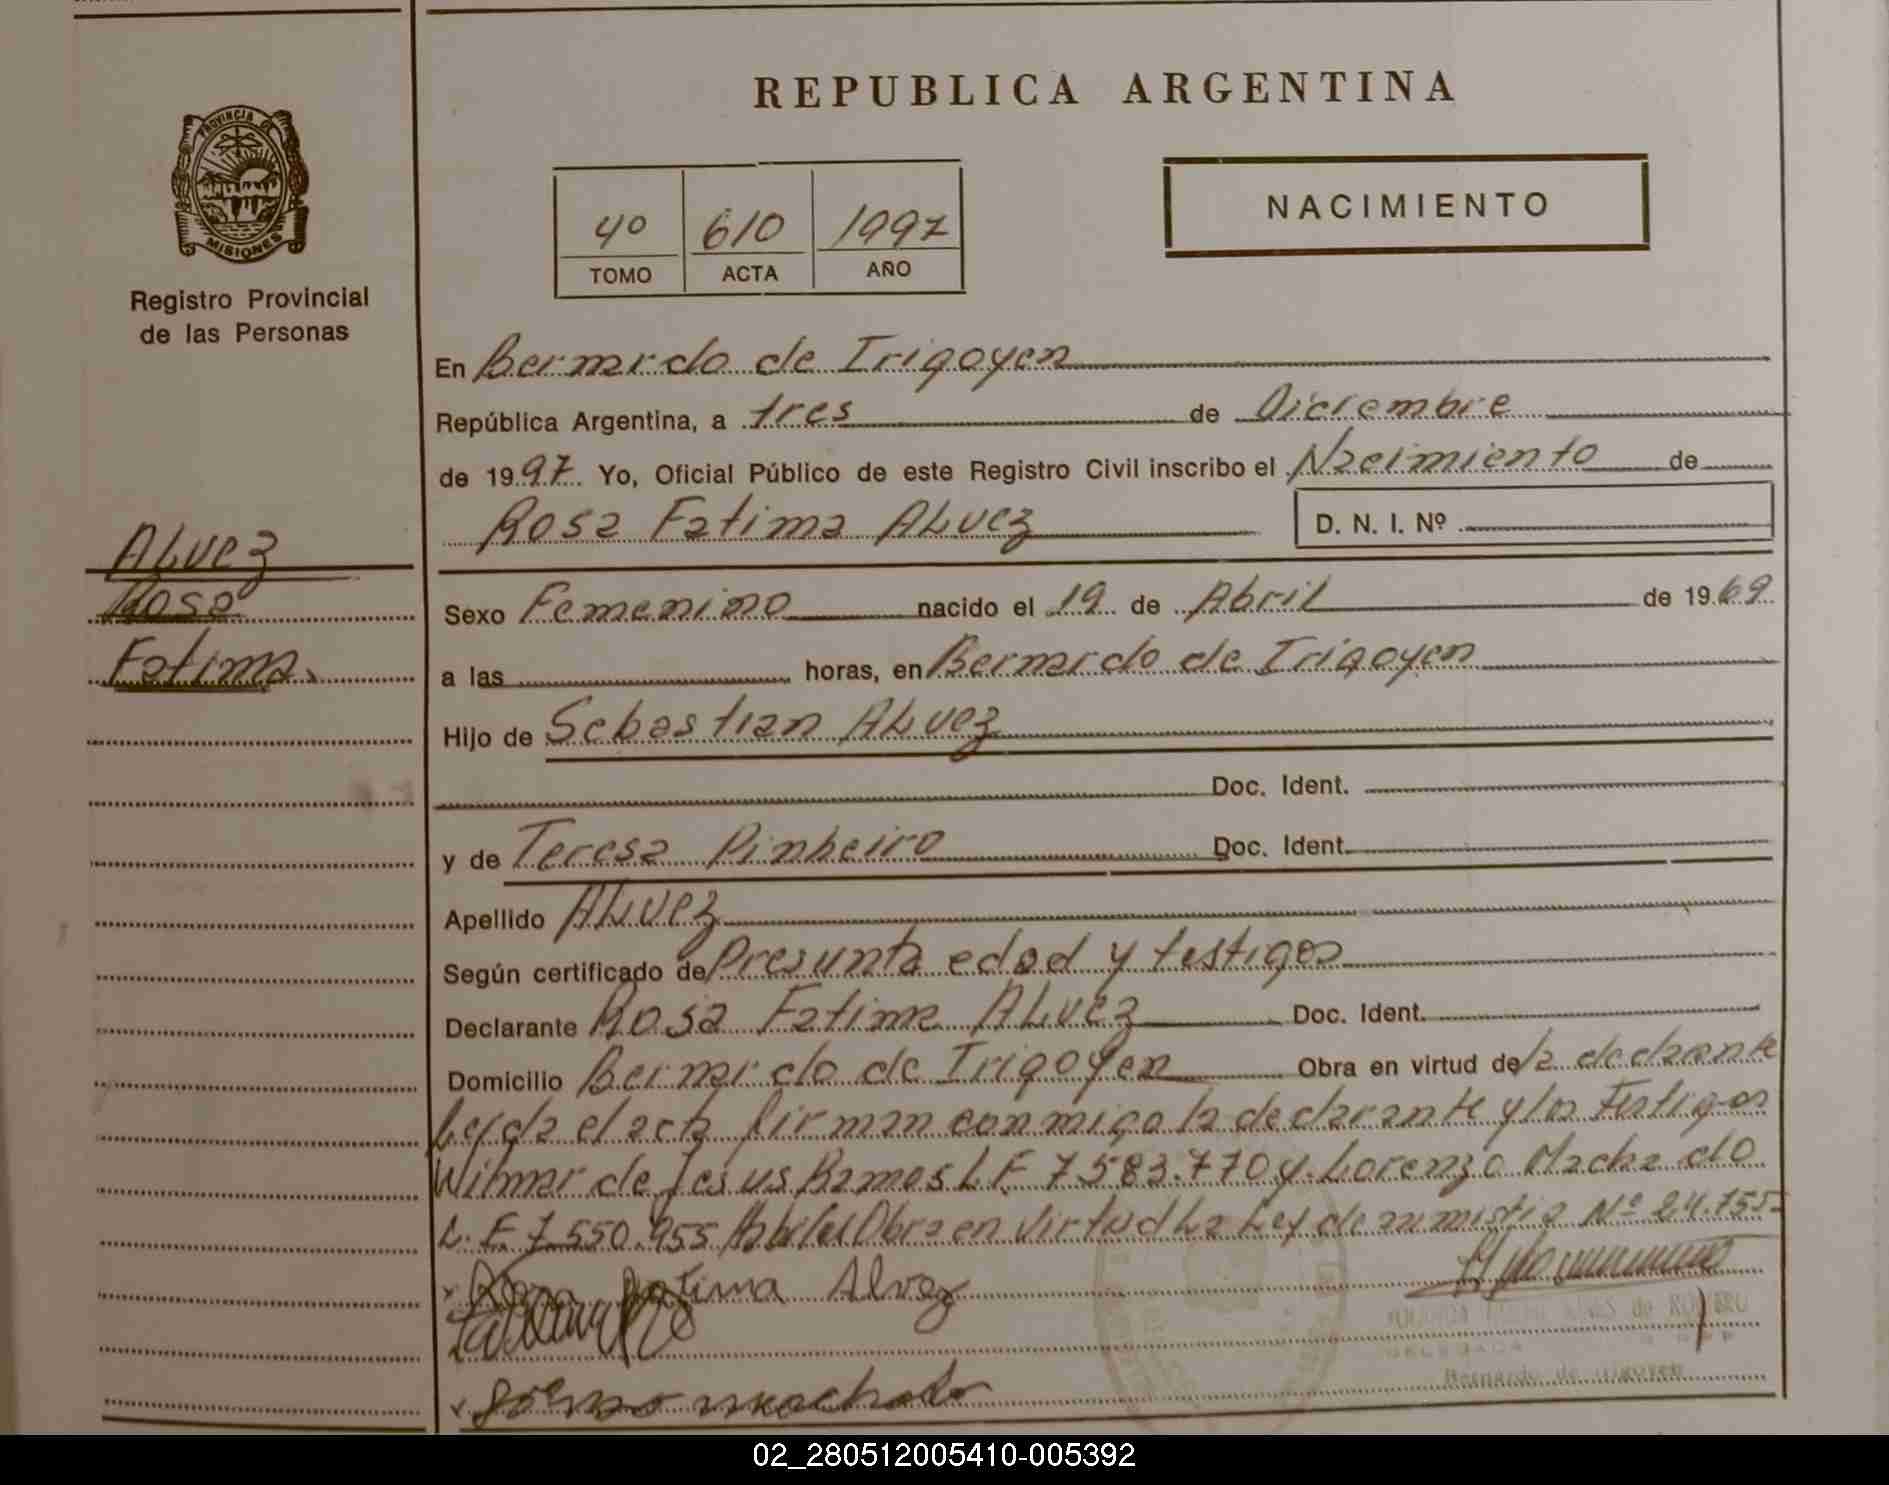 REPUBLICA ARGENTINA
PROVINCIA DE
MISIONES
Registro Provincial
de las Personas
4º 610 1997
TOMO ACTA AÑO
NACIMIENTO
En Bernardo de Irigoyen
República Argentina, a tres de Diciembre
de 1997 Yo, Oficial Público de este Registro Civil inscribo el Nacimiento de
Rosa Fatima ALvez D. N. I. Nº
ALvez
Rosa
Fatima
Sexo Femenino nacido el 19 de Abril de 1969
a las horas, en Bernardo de Irigoyen
Hijo de Sebastian ALvez
Doc. Ident.
y de Teresa Pinheiro Doc. Ident.
Apellido ALvez
Según certificado de Presunta edad y testigos
Declarante Rosa Fatima ALvez Doc. Ident.
Domicilio Bernardo de Irigoyen Obra en virtud de la declarante
Leyda el acta firman conmigo la declarante y los Testigos
Wilmar de Jesus Ramos L.E 7583.770 y Lorenzo Machado
L.E 7.550.955 Obra en virtud La Ley de amnistia Nº 24.755
Rosa Fatima Alvez
machado
DELEGADA
Bernardo de Irigoyen
02_280512005410-005392